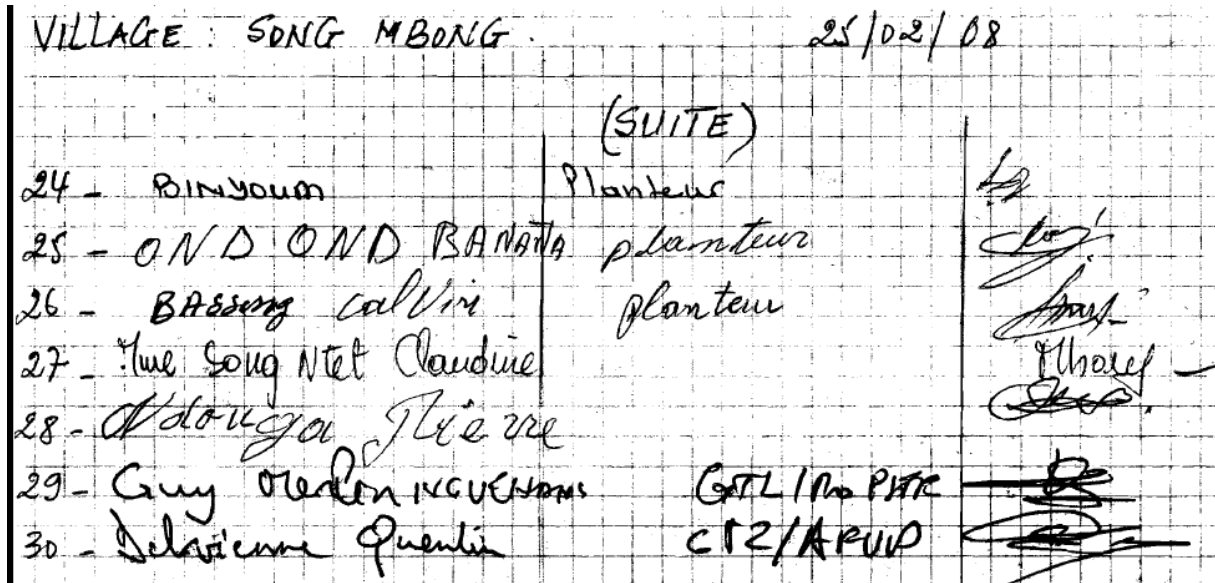 VILLAGE : SONG MBONG. 25/02/08
(SUITE)
24 - BINYOUM Planteur
25 - OND OND BANANA planteur
26 - BAsseng calVin planteur
27 - Mme Song Ntet Claudine
28 - Ndounga Pierre
29 - Guy Merlin
30 - Delvienne Quentin